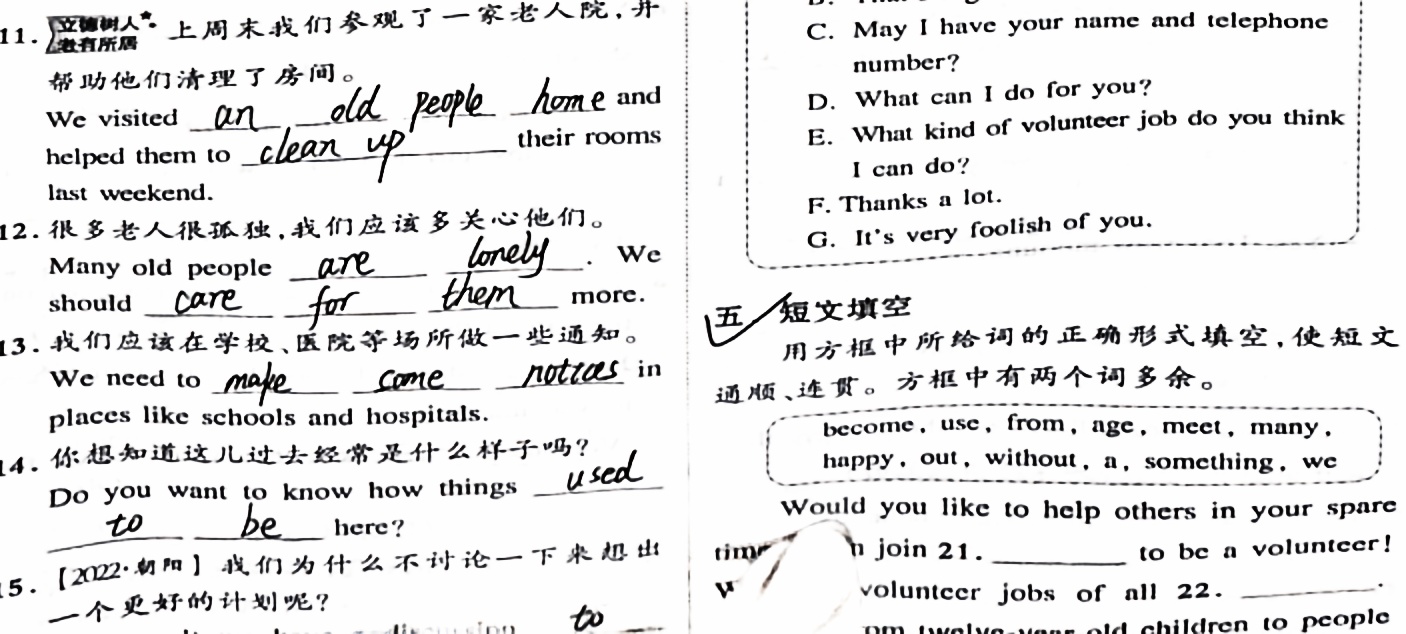 11. 立德树人 老有所居 上周末我们参观了一家老人院,并
帮助他们清理了房间。
We visited an old people home and
helped them to clean up their rooms
last weekend.
12. 很多老人很孤独,我们应该多关心他们。
Many old people are lonely. We
should care for them more.
13. 我们应该在学校、医院等场所做一些通知。
We need to make come notices in
places like schools and hospitals.
14. 你想知道这儿过去经常是什么样子吗?
Do you want to know how things used
to be here?
15. 【2022·朝阳】我们为什么不讨论一下来想出
一个更好的计划呢?
to
C. May I have your name and telephone
number?
D. What can I do for you?
E. What kind of volunteer job do you think
I can do?
F. Thanks a lot.
G. It's very foolish of you.
五 短文填空
用方框中所给词的正确形式填空,使短文
通顺、连贯。方框中有两个词多余。
become, use, from, age, meet, many,
happy, out, without, a, something, we
Would you like to help others in your spare
join 21. to be a volunteer!
volunteer jobs of all 22. .
twelve-year-old children to people